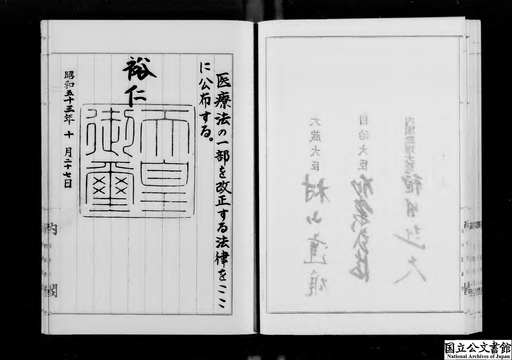 医療法の一部を改正する法律をここ
に公布する。
裕仁
天皇
御璽
昭和五十三年十月二十七日
内閣
自治大臣
大蔵大臣
村山達雄
国立公文書館
National Archives of Japan